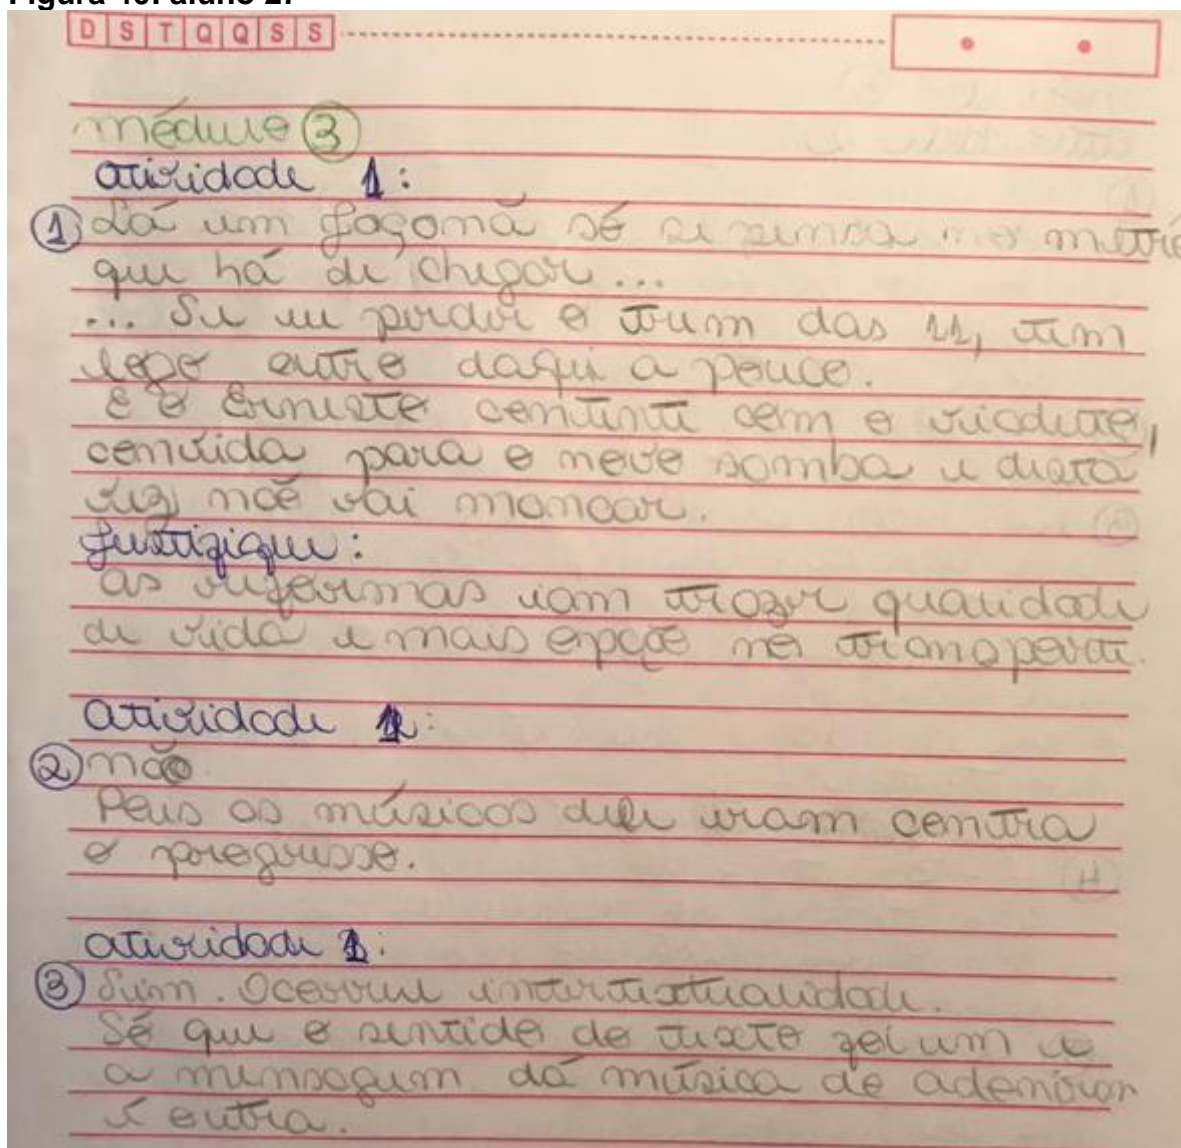 Figura 40: aluno 27
D S T Q Q S S
módulo 3
atividade 1:
1 Lá um Jaçanã só se pensa no metrô
que há de chegar...
... Se eu perder o trem das 11, tem
logo outro daqui a pouco.
E o Ernesto contente com o viaduto,
convida para o novo samba e desta
vez não vai mancar.
Justifique:
as reformas iam trazer qualidade
de vida e mais opção no transporte.
atividade 1:
2 não.
Pois as músicas dele eram contra
o progresso.
atividade 1:
3 Sim. Ocorreu intertextualidade.
Só que o sentido do texto foi um e
a mensagem da música de adoniran
é outra.